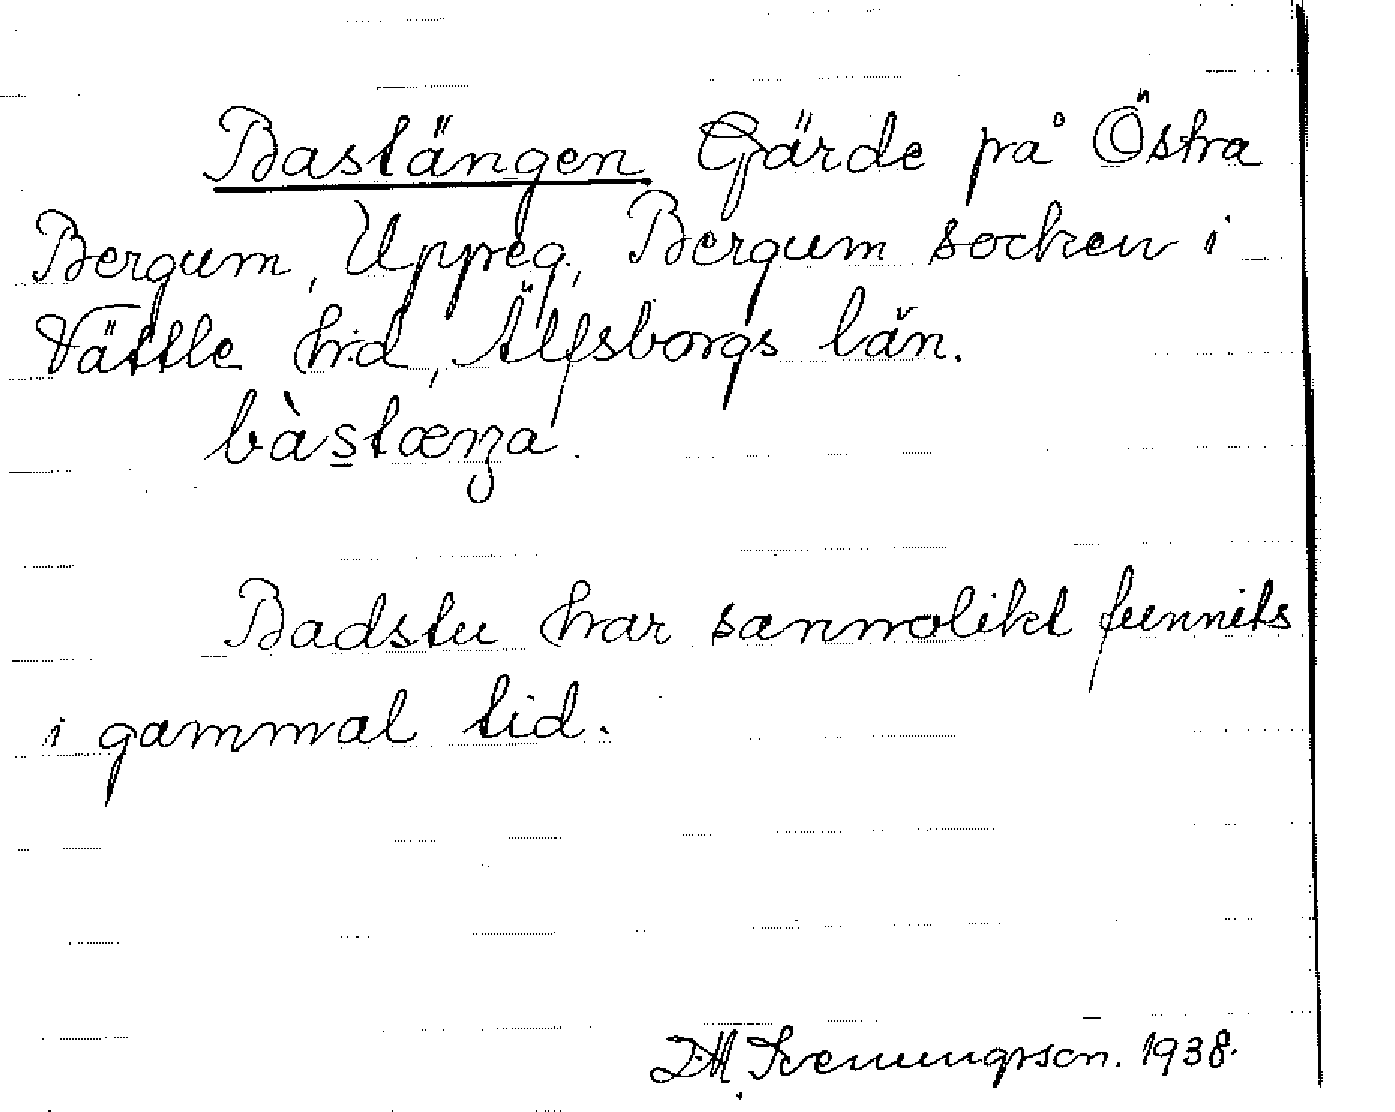 Bastängen Gärde på Östra
Bergum, Uppeg, Bergum socken i
Vättle hrd, Älfsborgs län.
bàs̲tæŋa.
Badstu har sannolikt funnits
i gammal tid.
Svenungsson. 1938.